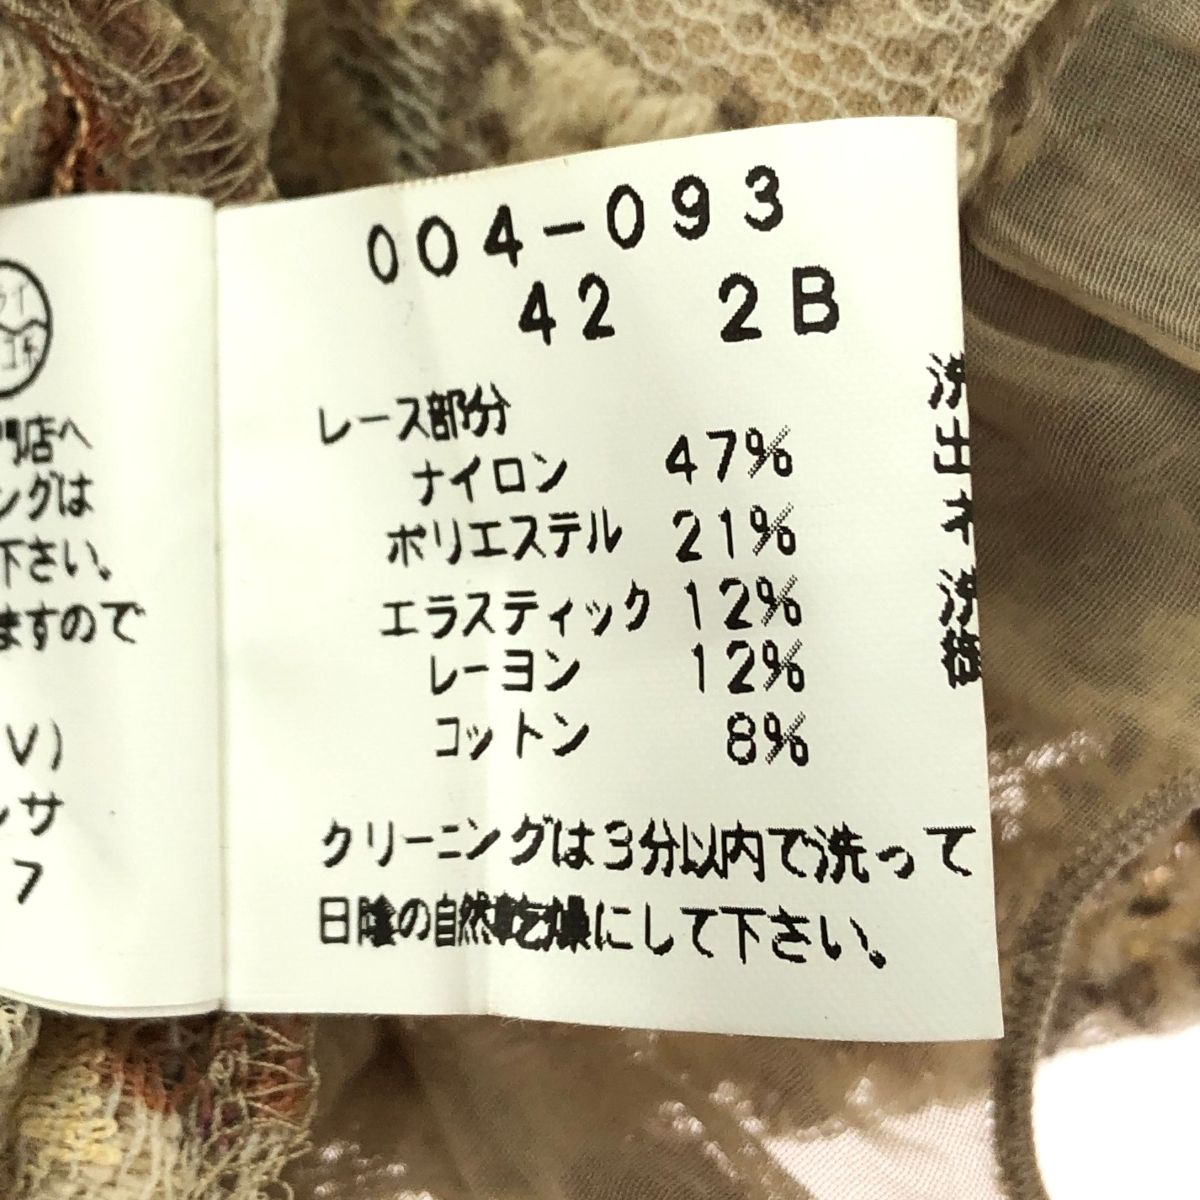 004-093
42 2B
レース部分
ナイロン 47%
ポリエステル 21%
エラスティック 12%
レーヨン 12%
コットン 8%
クリーニングは3分以内で洗って
日陰の自然乾燥にして下さい。
門店へ
ングは
下さい。
ますので
V)
サ
フ
洗
出
ネ
洗